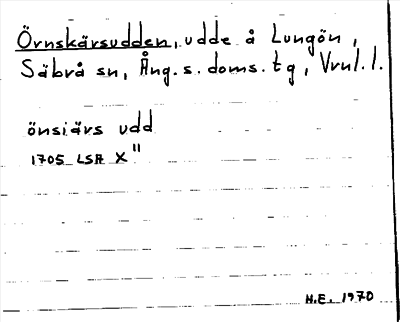 Örnskärsudden, udde å Lungön,
Säbrå sn, Ång. s. doms. tg, Vrnl. l.
önsiärs udd
1705 LSA X"
H.E. 1970